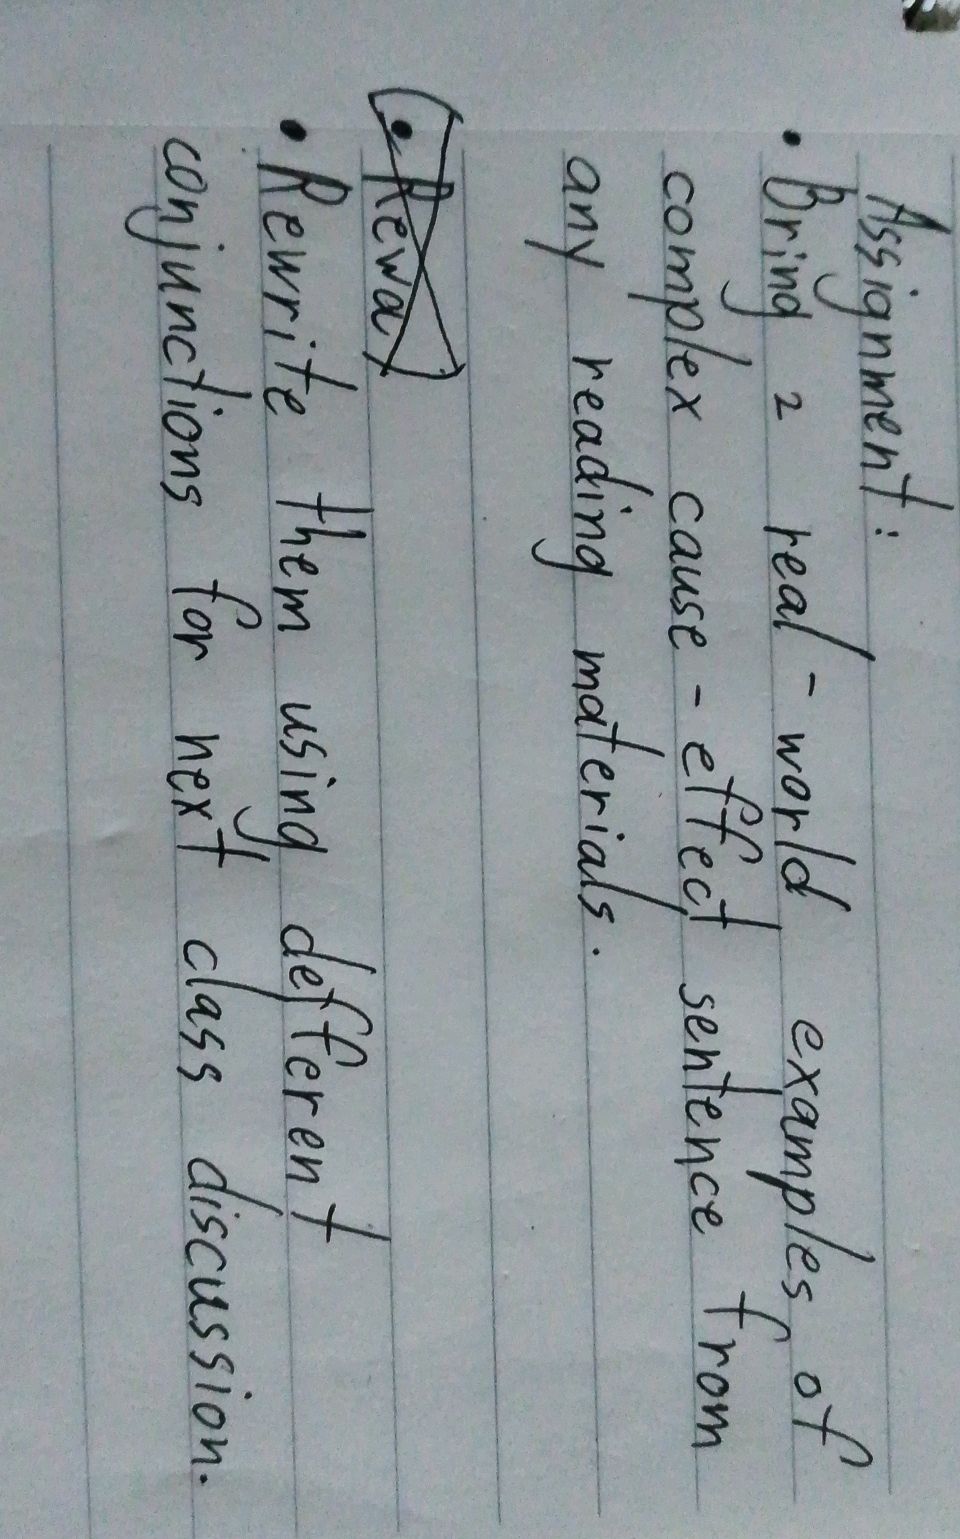 Assignment:
• Bring 2 real-world examples of
complex cause-effect sentence from
any reading materials.
• Rewa
• Rewrite them using defferent
conjunctions for next class discussion.